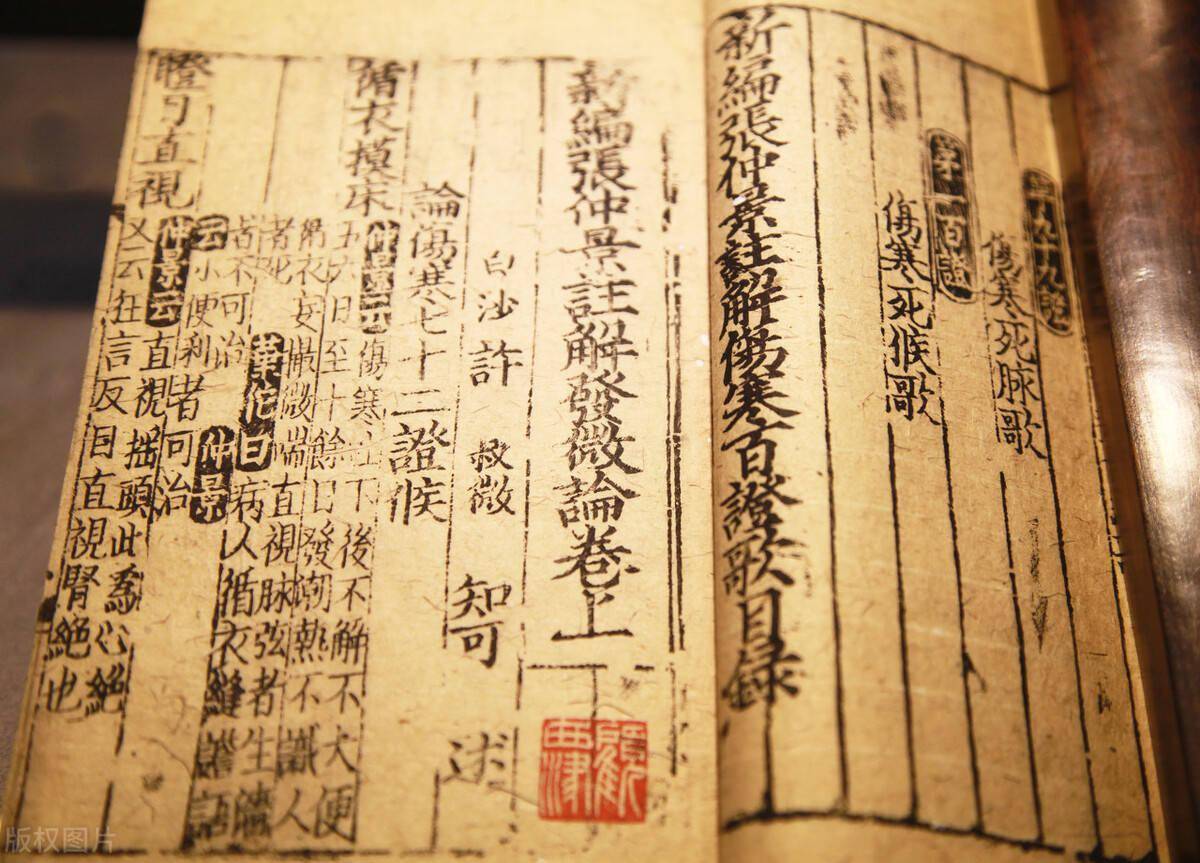 第九十九證
傷寒死脉歌
第一百證
傷寒死候歌
新編張仲景註解傷寒百證歌目録
新編張仲景註解發微論卷上
白沙許 叔微 知可 述
論傷寒七十二證候
循衣摸床 仲景云傷寒吐下後不解不大便
五六日至十餘日發潮熱不識人
循衣妄撮微喘直視脉弦者生濇
者死 華佗曰病人循衣縫譫語
者不可治 仲景
云小便利者可治
瞪目直視 仲景云直視揺頭此爲心絶
又云狂言反目直視腎絶也
版权图片